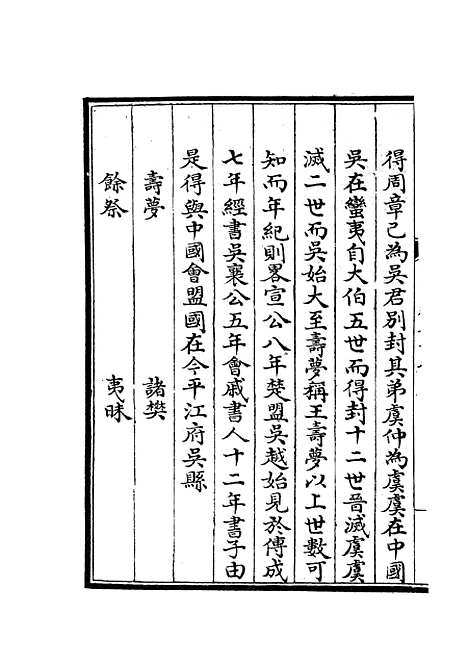 得周章已為吳君別封其弟虞仲為虞虞在中國
吳在蠻夷自大伯五世而得封十二世晉滅虞虞
滅二世而吳始大至壽夢稱王壽夢以上世數可
知而年紀則畧宣公八年楚盟吳越始見於傳成
七年經書吳襄公五年會戚書人十二年書子由
是得與中國會盟國在今平江府吳縣
壽夢　諸樊
餘祭　夷昧